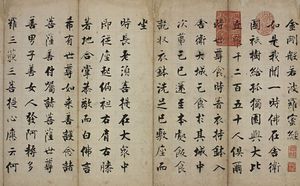 金剛般若波羅蜜經
如是我聞一時佛在舍衛
國祇樹給孤獨園與大比
丘衆千二百五十人俱爾
時世尊食時著衣持鉢入
舍衛大城乞食於其城中
次第乞已還至本處飯食
訖收衣鉢洗足已敷座而
坐
時長老須菩提在大衆中
即從座起偏袒右肩右膝
著地合掌恭敬而白佛言
希有世尊如來善護念諸
菩薩善付囑諸菩薩世尊
善男子善女人發阿耨多
羅三藐三菩提心應云何